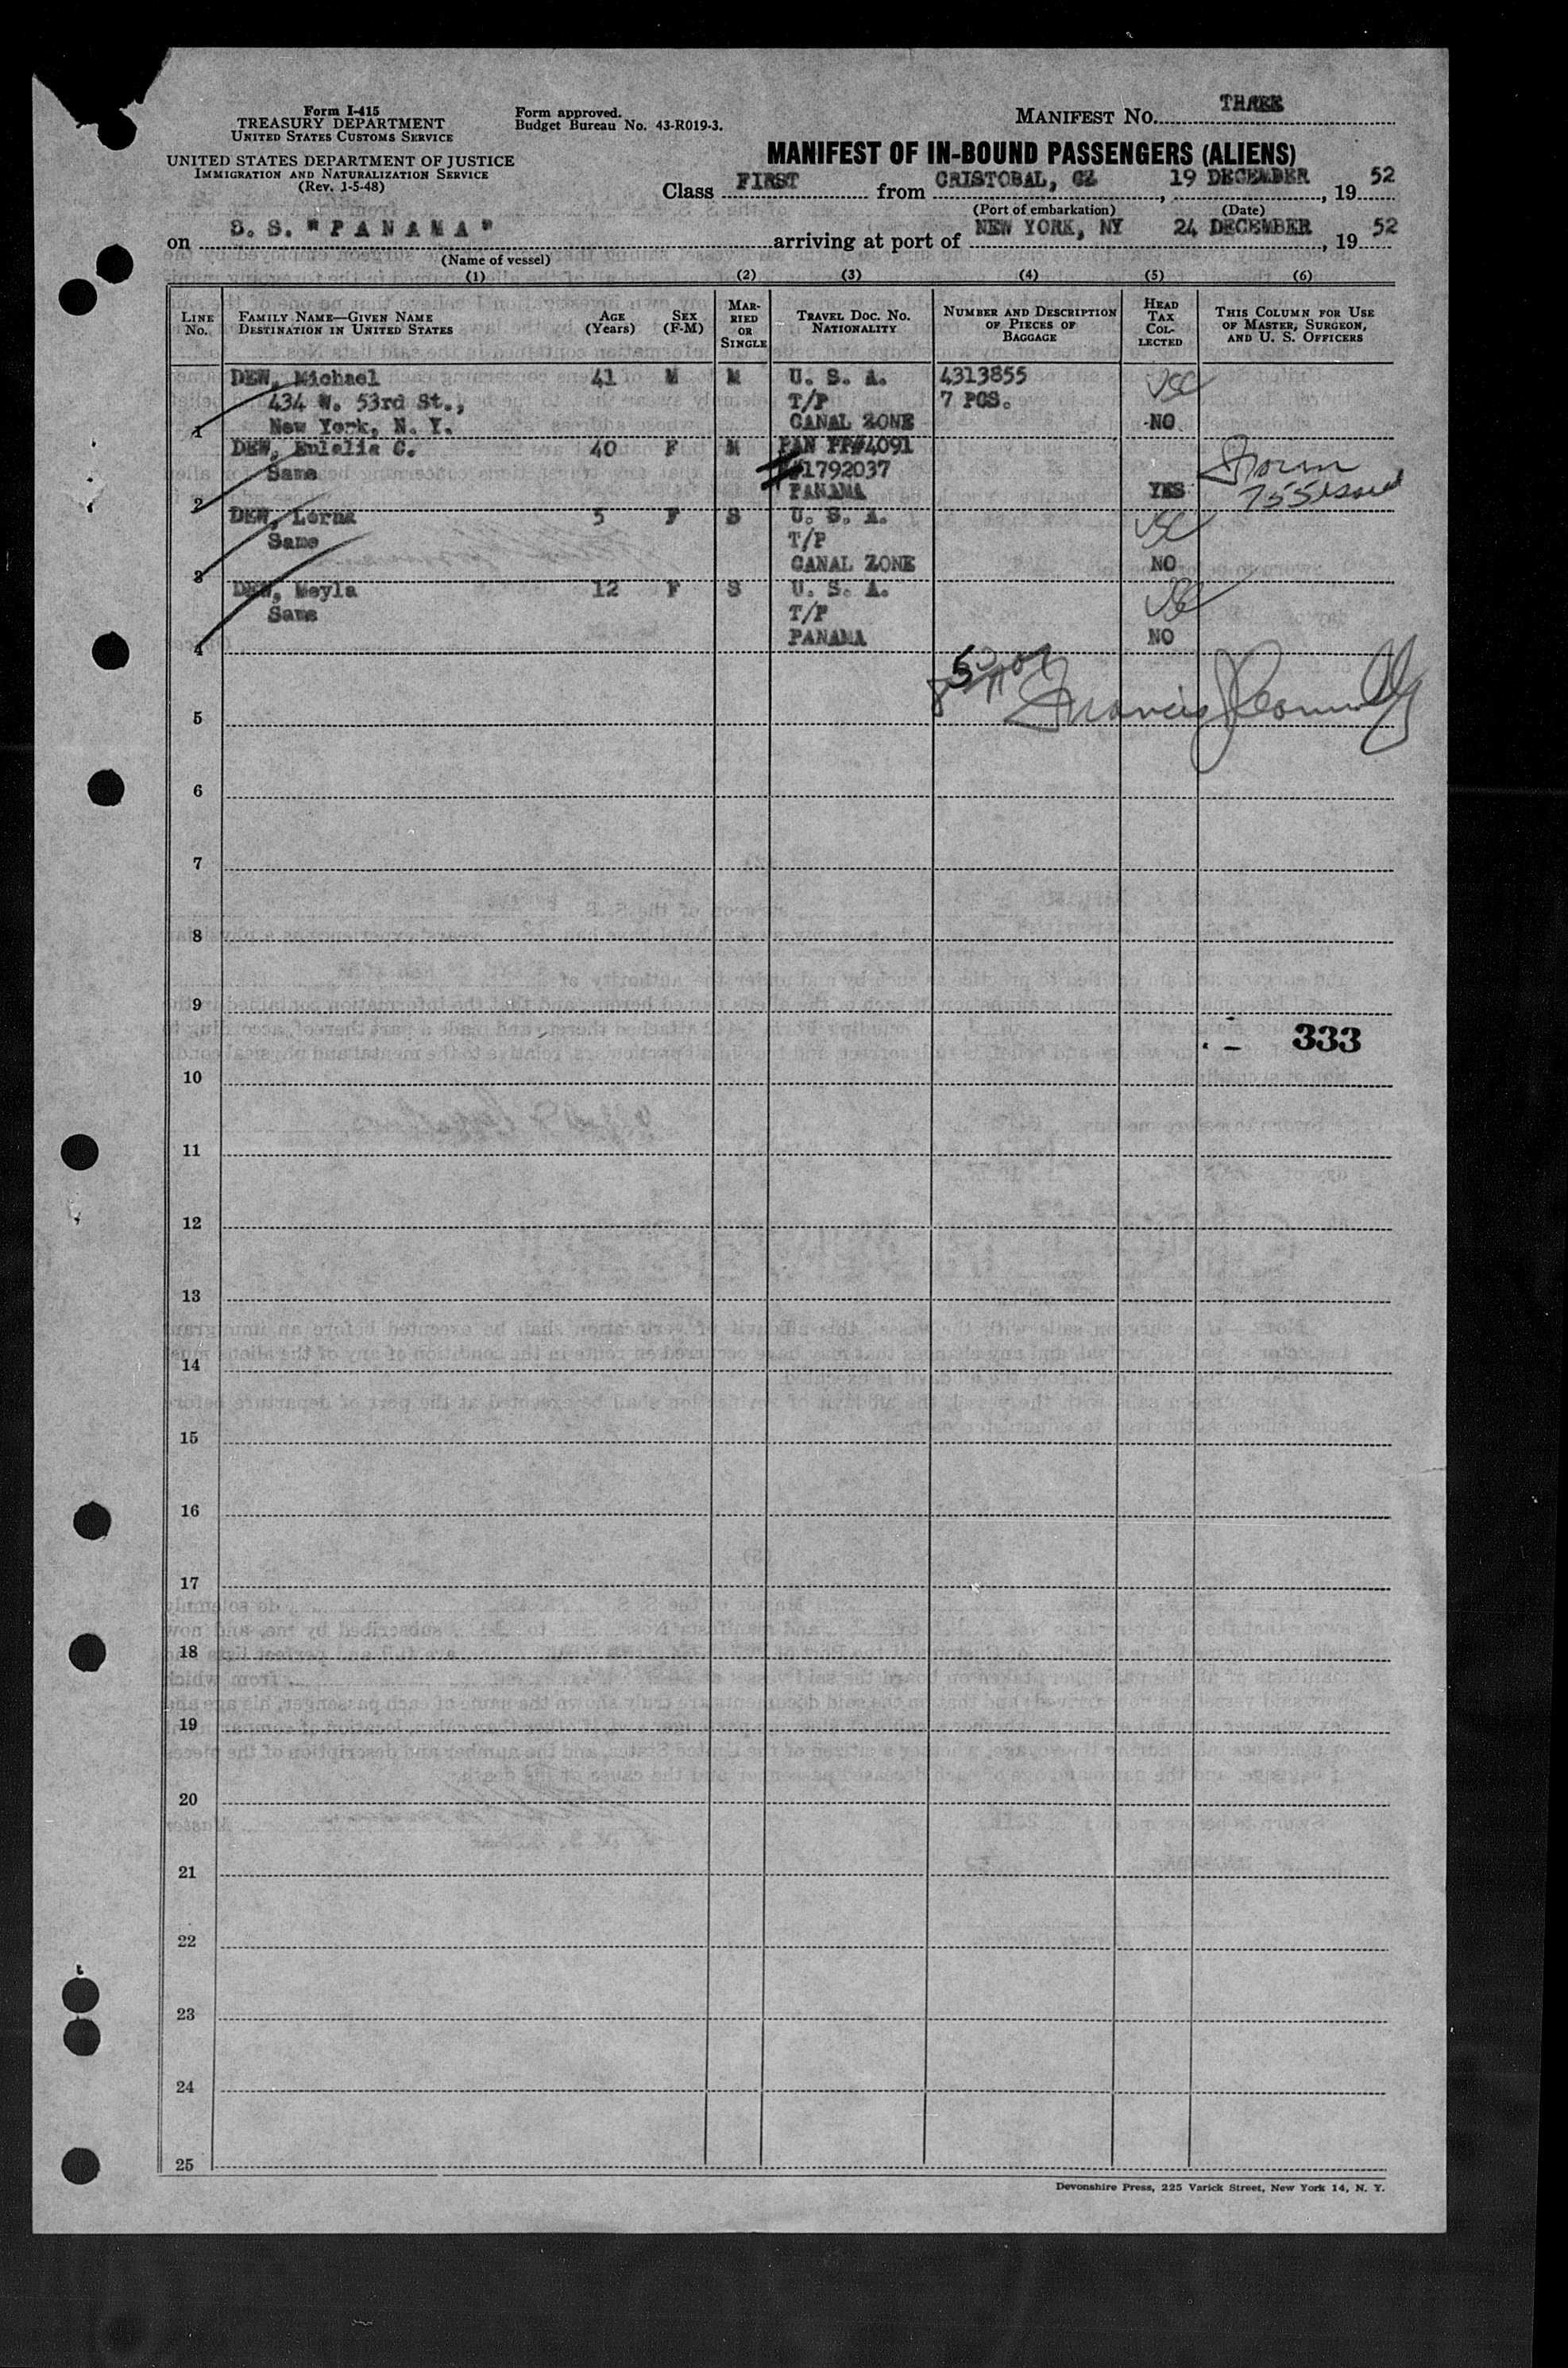 Form I-415
TREASURY DEPARTMENT
UNITED STATES CUSTOMS SERVICE
UNITED STATES DEPARTMENT OF JUSTICE
IMMIGRATION AND NATURALIZATION SERVICE
(Rev. 1-5-48)
Form approved.
Budget Bureau No. 43-R019-3.
MANIFEST NO. THREE
MANIFEST OF IN-BOUND PASSENGERS (ALIENS)
Class FIRST from CRISTOBAL, CZ, 19 DECEMBER, 19 52
(Port of embarkation) (Date)
on S. S. "P A N A M A" arriving at port of NEW YORK, NY 24 DECEMBER, 19 52
(Name of vessel)
(1) (2) (3) (4) (5) (6)
LINE No. FAMILY NAME—GIVEN NAME DESTINATION IN UNITED STATES AGE (Years) SEX (F-M) MARRIED OR SINGLE TRAVEL DOC. NO. NATIONALITY NUMBER AND DESCRIPTION OF PIECES OF BAGGAGE HEAD TAX COLLECTED THIS COLUMN FOR USE OF MASTER, SURGEON, AND U. S. OFFICERS
DEW, Michael 41 M M U. S. A. 4313855 USC
434 W. 53rd St., T/P 7 PCS.
1 New York, N. Y. CANAL ZONE NO
DEW, Eulalia C. 40 F M PAN PP#4091
Same 1792037 Form
2 PANAMA YES 755 issued
DEW, Lorna 5 F S U. S. A. USC
Same T/P
3 CANAL ZONE NO
DEW, Meyla 12 F S U. S. A. USC
Same T/P
4 PANAMA NO
5 Francis J Connolly
6
7
8
9
333
10
11
12
13
14
15
16
17
18
19
20
21
22
23
24
25
Devonshire Press, 225 Varick Street, New York 14, N. Y.